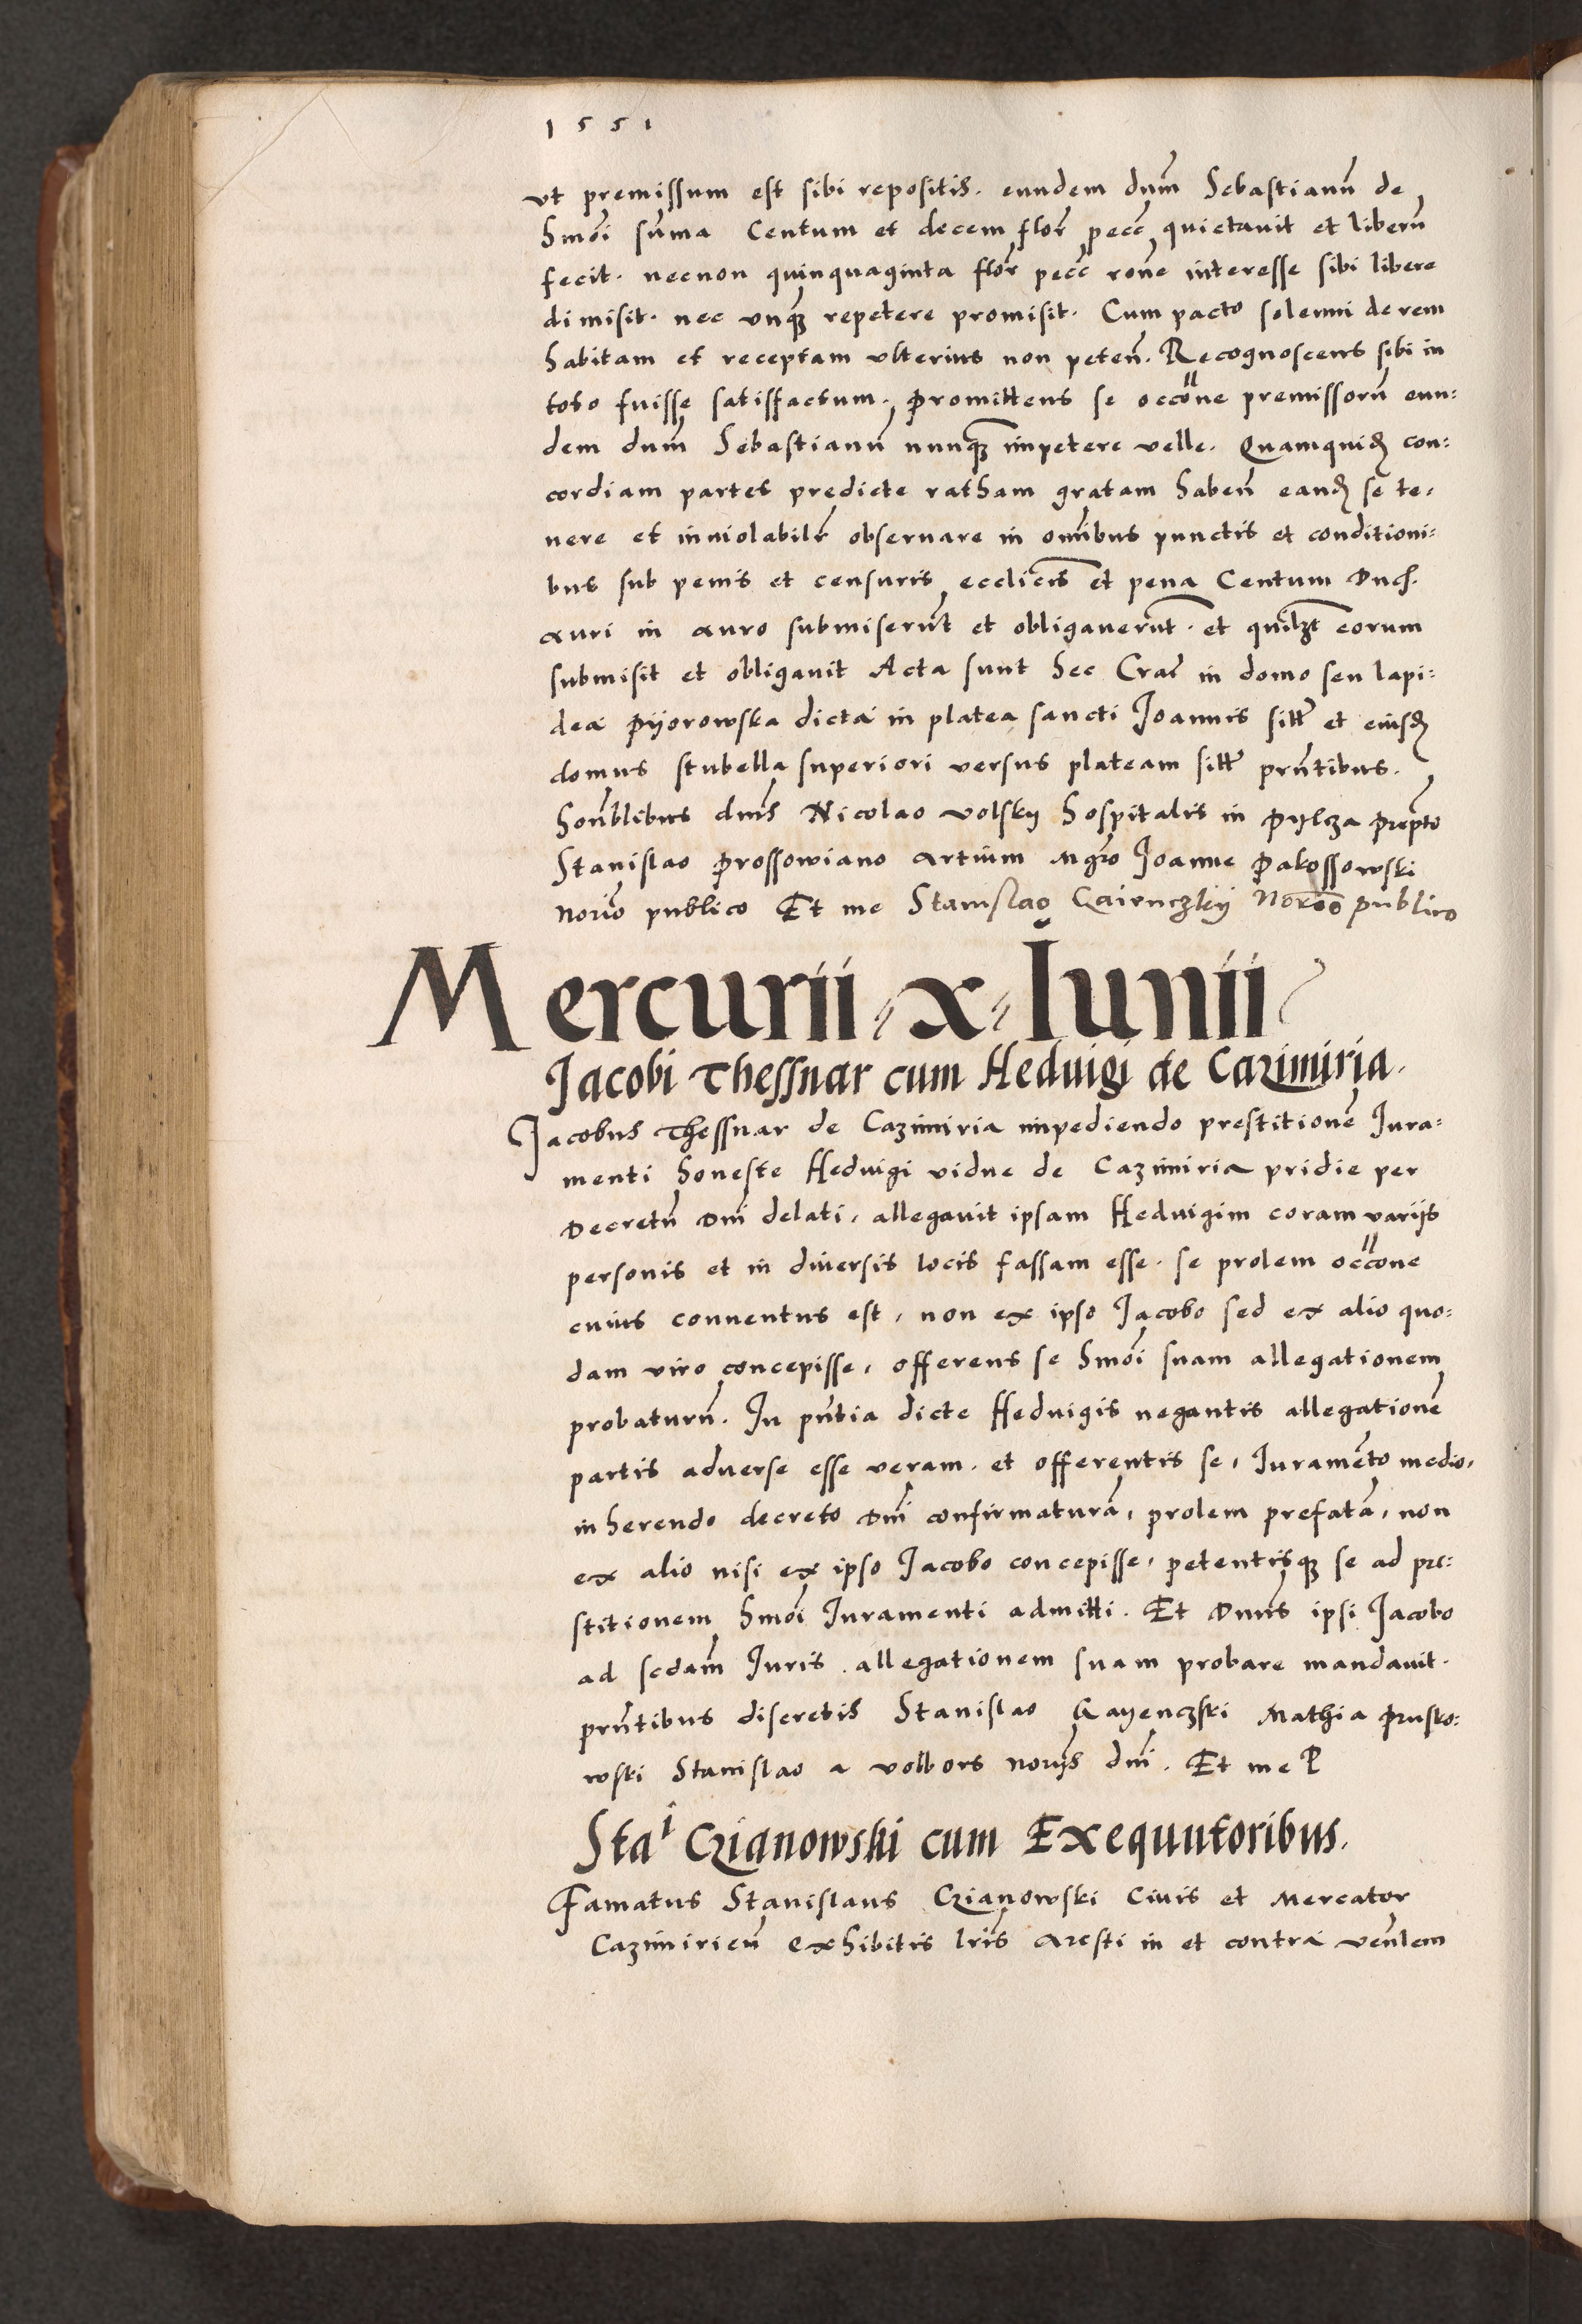 1551
vt premissum est sibi repositis. eundem dnm̄ Sebastianū de
hmōi sūma Centum et decem flor̄ pecc̄ quietauit et liberū
fecit. necnon quinquaginta flor̄ pecc̄ rōne interesse sibi libere
dimisit. nec vnq̄ repetere promisit. Cum pacto solenni de rem
habitam et receptam vlterius non peteñ. Recognoscens sibi in
toto fuisse satisfactum. promittens se occōne premissorū eun=
dem dnm̄ Sebastianū nunq̄ impetere velle. Quamquid̄ con=
cordiam partes predicte ratham gratam habeñ eand̄ se te=
nere et inuiolabilr̄ obseruare in om̄ibus punctis et conditioni=
bus sub penis et censuris ecclic̄is et pena Centum Duc̄.
auri in auro submiserūt et obligauerūt. et quilꝫt eorum
submisit et obligauit Acta sunt hec Crac̄ in domo seu lapi=
dea pijorowska dicta in platea sancti Joannis sitt̄ et eiusd̄
domus stubella superiori versus plateam sitt̄ prn̄tibus.
hon̄blibus dnīs Nicolao volsky hospitalis in pylcza prep̄to
Stanislao prossowiano artium Mgr̄o Joanne pakossowski
norīo publico Et me Stanislao Gaienczkij Norīoo publico
Mercurii x Iunii
Jacobi Thessnar cum Heduigi de Cazimiria.
Jacobus Thessnar de Cazimiria impediendo prestitionē Jura=
menti honeste Heduigi vidue de Cazimiria pridie per
Decretū Dnī delati, allegauit ipsam Heduigim coram varijs
personis et in diuersis locis fassam esse. se prolem occōne
cuius conuentus est, non ex ipso Jacobo sed ex alio quo=
dam viro concepisse, offerens se hmōi suam allegationem
probaturū. In pn̄tia dicte Heduigis negantis allegationē
partis aduerse esse veram. et offerentis se, Iuramēto medio,
inherendo decreto Dnī confirmaturā, prolem prefatā, non
ex alio nisi ex ipso Jacobo concepisse, petentisq̄ se ad pre=
stitionem hmōi Iuramenti admitti. Et Dnn̄s ipsi Jacobo
ad sc̄dam Iuris allegationem suam probare mandauit.
prn̄tibus discretis Stanislao Gayenczski Mathia prusko=
wski Stanislao a volbors norījs dnī. Et me P
Staī Czianowski cum Exequutoribus.
Famatus Stanislaus Czianowski Ciuis et Mercator
Cazimirieñ exhibitis lrīs aresti in et contra ven̄lem